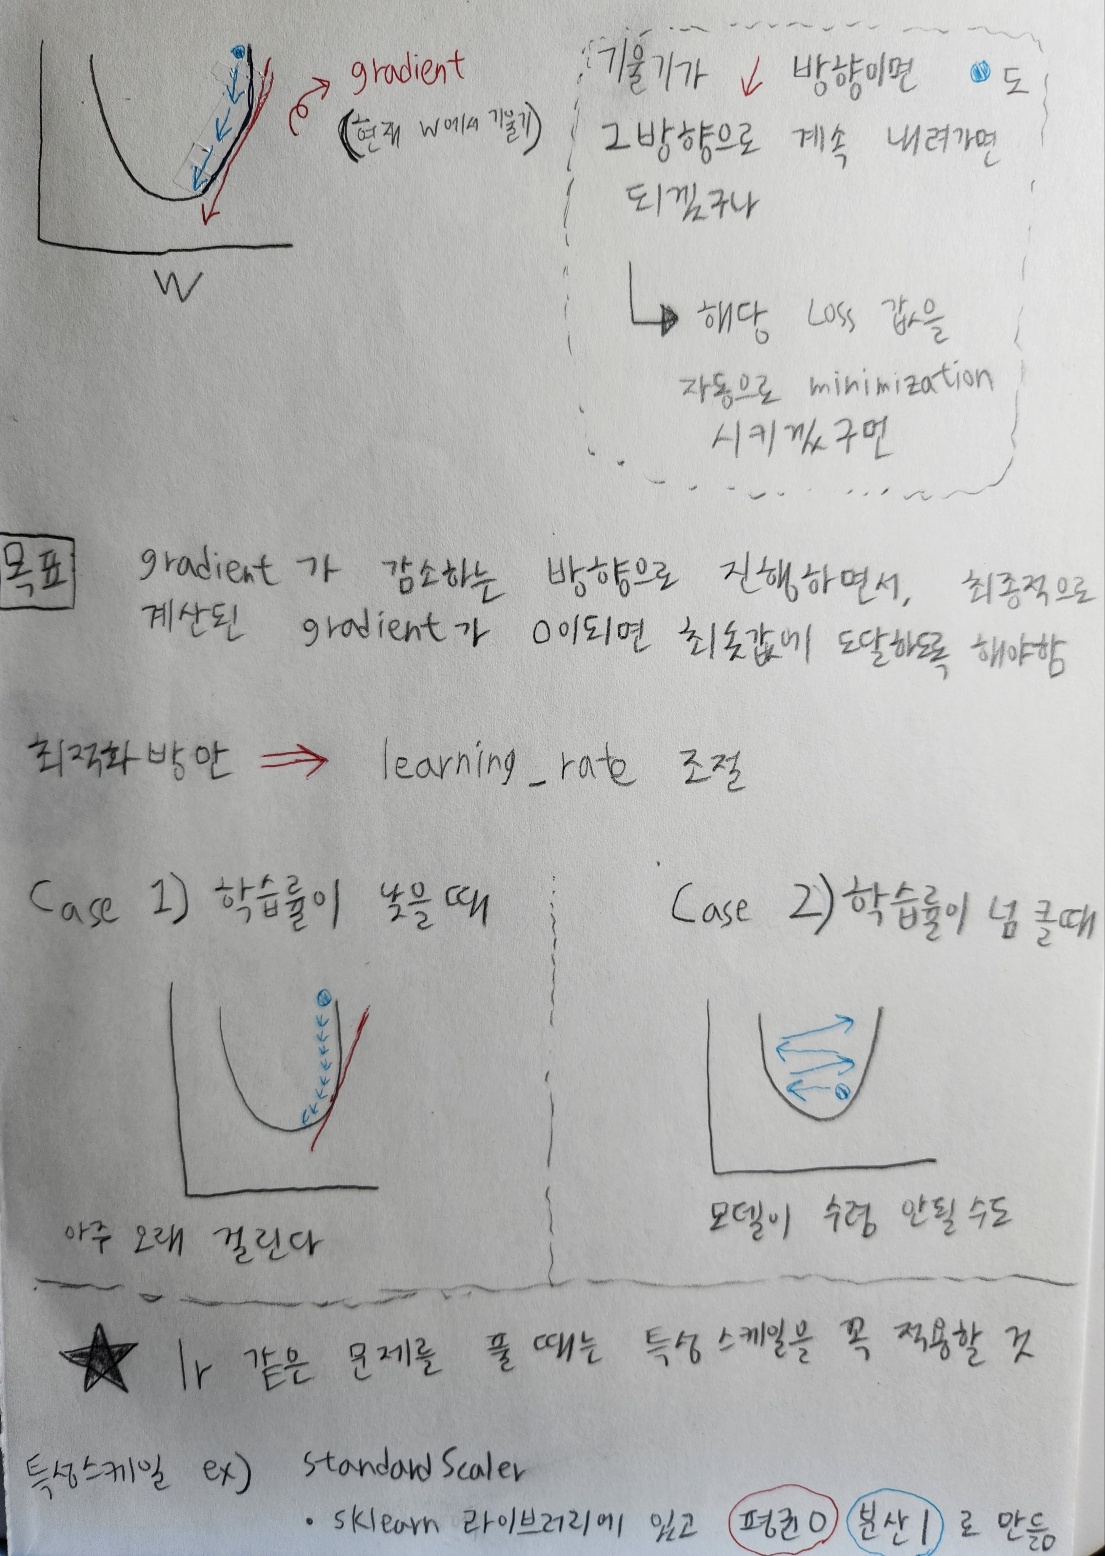 gradient
(현재 W에서 기울기)
W
기울기가 ↓ 방향이면 도
그방향으로 계속 내려가면
되겠구나
해당 Loss 값을
자동으로 minimization
시키겠구면
목표
gradient 가 감소하는 방향으로 진행하면서, 최종적으로
계산된 gradient가 0이되면 최솟값에 도달하도록 해야함
최적화 방안 ⇒ learning_rate 조절
Case 1) 학습률이 낮을 때
아주 오래 걸린다
Case 2) 학습률이 넘 클때
모델이 수렴 안될 수도
★ lr 같은 문제를 풀 때는 특성 스케일을 꼭 적용할 것
특성스케일 ex) standardScaler
• sklearn 라이브러리에 있고 평균 0 분산 1 로 만듦